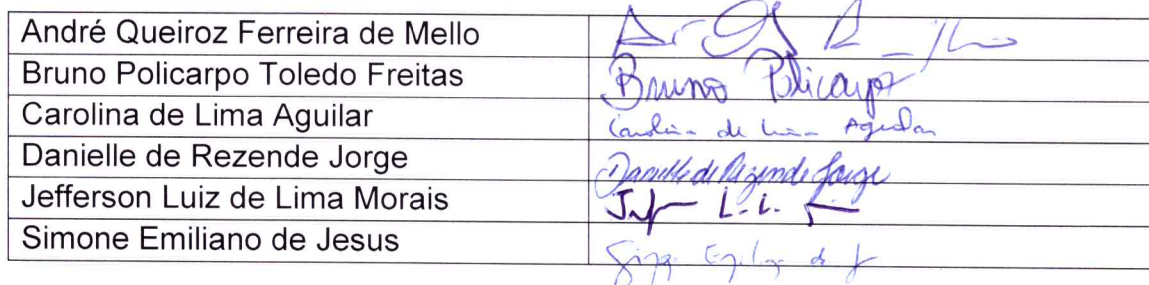 André Queiroz Ferreira de Mello
Bruno Policarpo Toledo Freitas Bruno Policarpo
Carolina de Lima Aguilar Carolina de Lima Aguilar
Danielle de Rezende Jorge Danielle de Rezende Jorge
Jefferson Luiz de Lima Morais
Simone Emiliano de Jesus